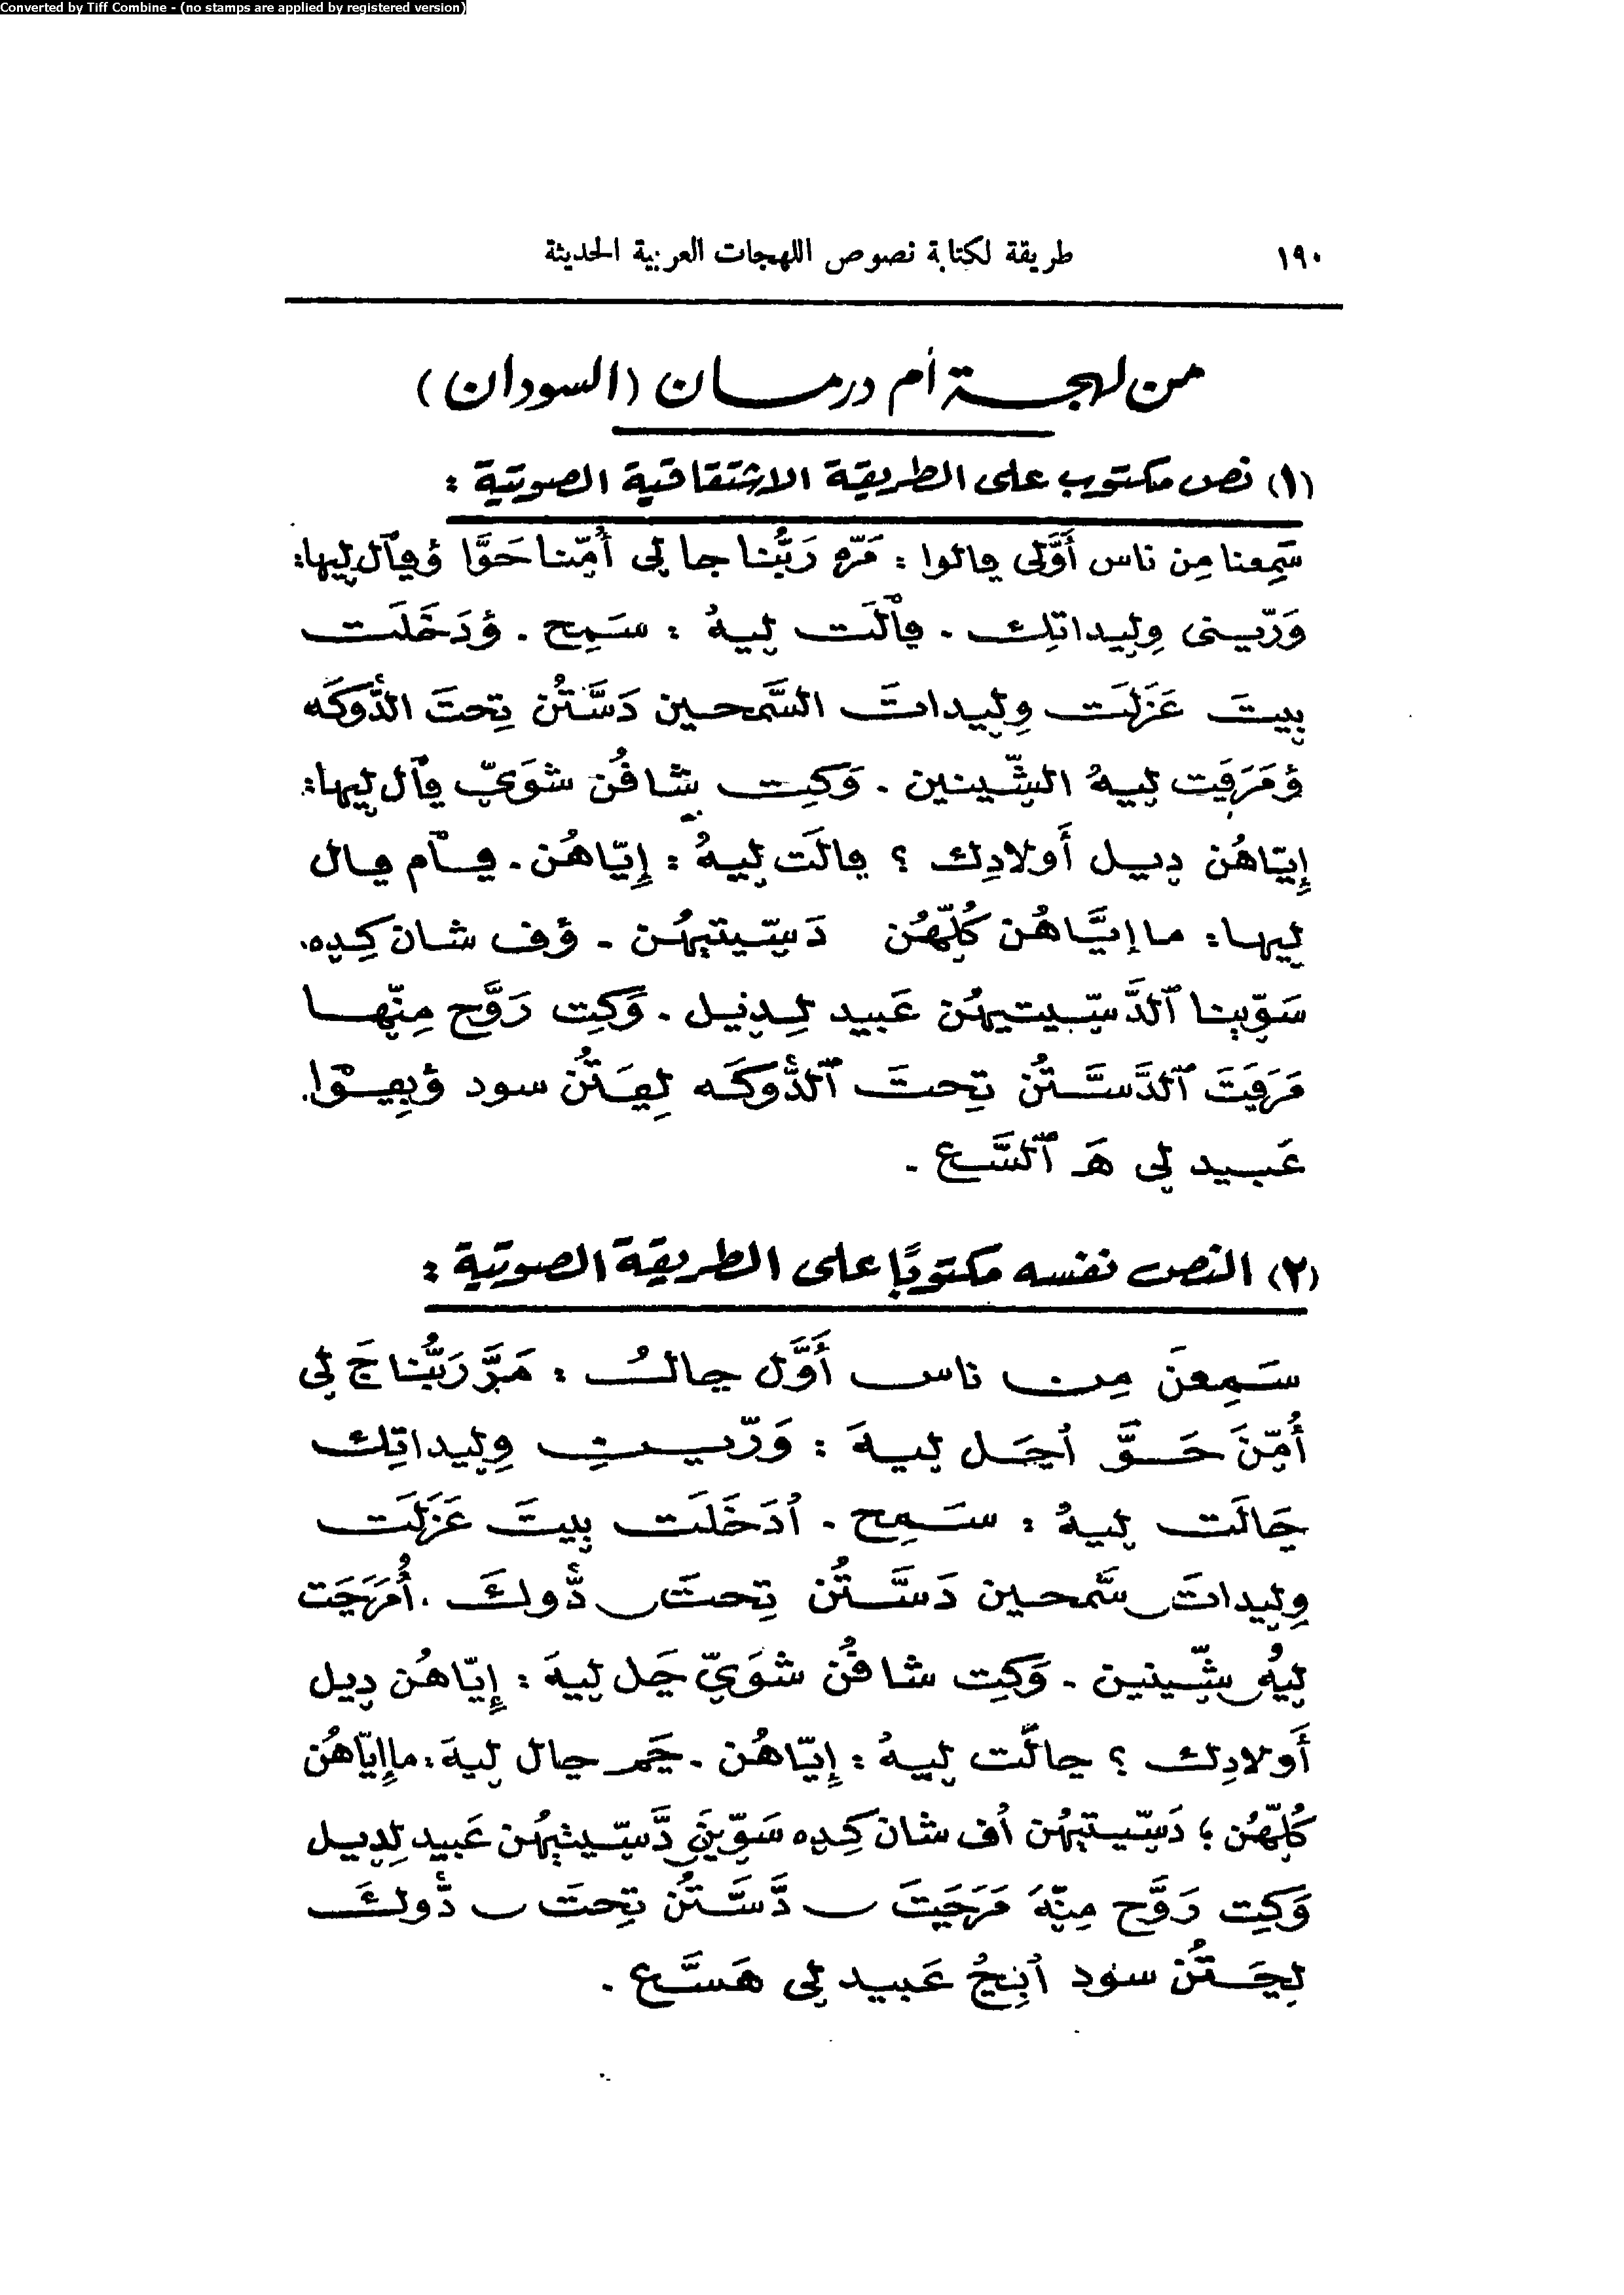 Converted by Tiff Combine - (no stamps are applied by registered version)
١٩٠ طريقة لكتابة نصوص اللهجات العربية الحديثة
من لهجة أم درمان (السودان)
(١) نص مكتوب على الطريقة الاشتقاقية الصوتية :
سَمِعنا مِن ناس أَوَّلى ڢالوا : مَرّه رَبُّنا جا لِى أُمِّنا حَوَّا ؤڢاَل ليها:
وَرّينى وِليداتِك . ڢاَلَت ليهُ : سَمِح . ؤدَخَلَت
بيتَ عَزَلَت وِليداتَ السَّمحين دَسَّتُن تِحتَ الدُّوكَه
ؤمَرَڢَت ليهُ الشِّينين . وَكِت شافُن شوَيّ ڢاَل ليها:
إيّاهُن ديل أَولادِك ؟ ڢالَت ليهُ : إيّاهُن . ڢاَم ڢال
ليها: ما إيَّاهُن كُلّهُن دَسّيتيهُن . ؤف شان كِده.
سَوّينا ٱلدَّسّيتيهُن عَبيد لِديل . وَكِت رَوَّح مِنّها
مَرَڢَتَ ٱلدَّسَّتُن تِحتَ ٱلدُّوكَه لِڢَتُن سود ؤبِڢوا.
عَبيد لِى هَـ ٱلسَّع .
(٢) النص نفسه مكتوبًا على الطريقة الصوتية :
سَمِعنَ مِن ناس أَوَّل ڃالُ : مَرَّ رَبُّنا جَ لِى
أُمِّنَ حَوَّ اُڃَل ليهَ : وَرّينِ وِليداتِك
ڃالَت ليهُ : سَمِح . اُدَخَلَت بيتَ عَزَلَت
وِليداتَ سَّمحين دَسَّتُن تِحتَ دُّوكَ . أُمَرَڃَت
ليهُ شِّينين . وَكِت شافُن شوَيّ ڃَل ليهَ : إيّاهُن ديل
أَولادِك ؟ ڃالَت ليهُ : إيّاهُن . ڃَم ڃال ليهَ : ما إيّاهُن
كُلّهُن ؛ دَسّيتيهُن اُف شان كِده سَوّينَ دَّسّيتيهُن عَبيد لِديل
وَكِت رَوَّح مِنّهَ مَرَڃَتَ دَّسَّتُن تِحتَ دُّوكَ
لِڃَتُن سود اُبِڃُ عَبيد لِى هَسَّع .